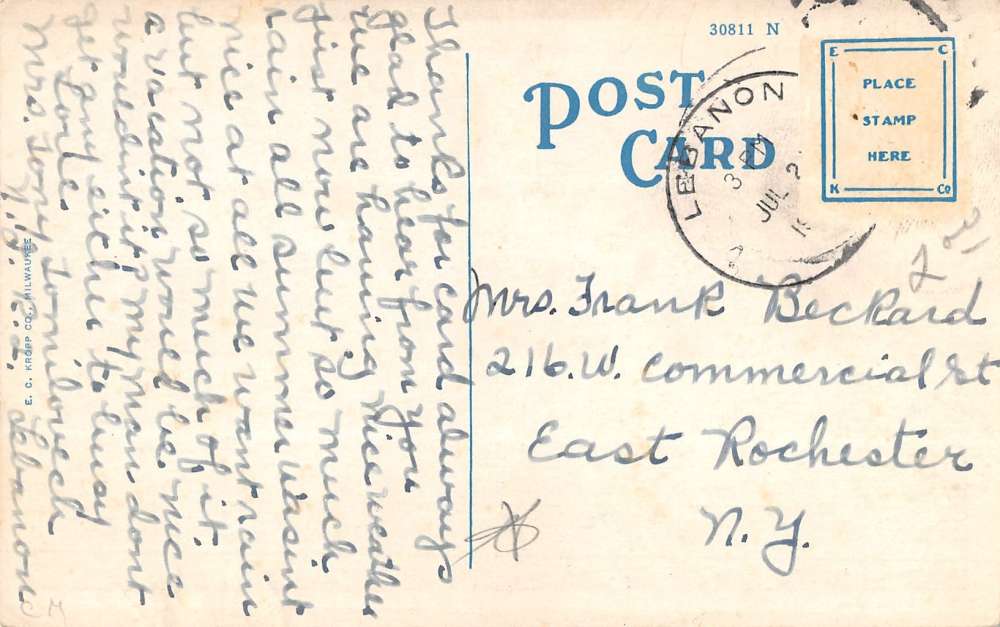 30811 N
POST CARD
PLACE
STAMP
HERE
E C
K Co
LEBANON
3 PM
JUL 2
Thanks for card always
glad to hear from you
we are having nice weather
just now but so much
rain all summer wasint
nice at all we want rain
but not so much of it.
a vacation would be nice
wouldn't it? my man dont
get any eiche to busy
Love
Mrs. Tony Tomilovech
Lebanon
Mrs. Frank Beckard
216. W. Commercial St
East Rochester
N. Y.
E. C. KROPP CO., MILWAUKEE